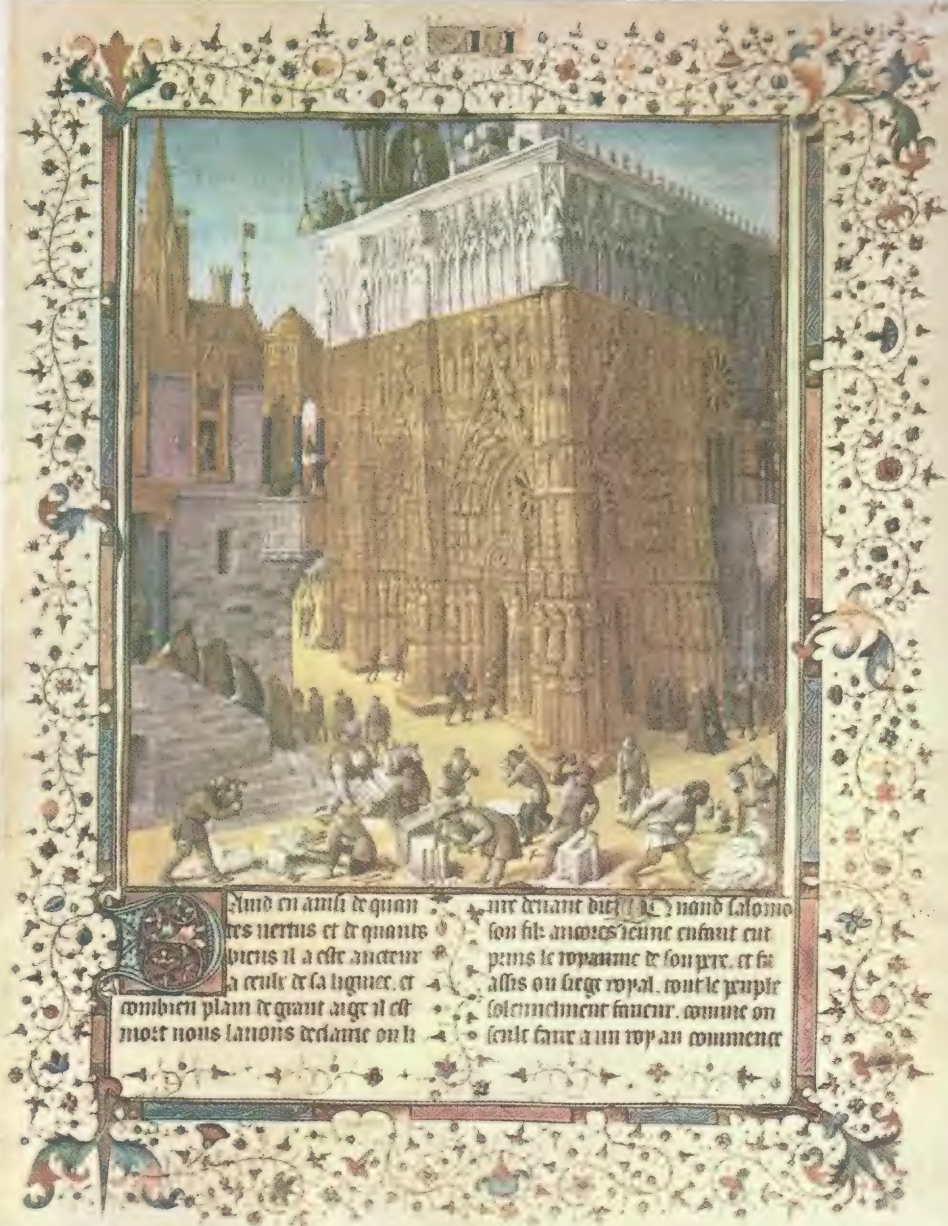 DAuid en ainsi de quan
tes uertus et de quants
biens il a este aucteur
a ceulx de sa lignee. et
combien plain de grant aige il est
mort nous lauons declairie ou li
ure deuant dit Quand salomo
son filz ancores ieune enfant eut
prins le royaume de son pere. et fu
assis ou siege royal. tout le peuple
solennelment faueur. comme on
seult faire a un roy au commence